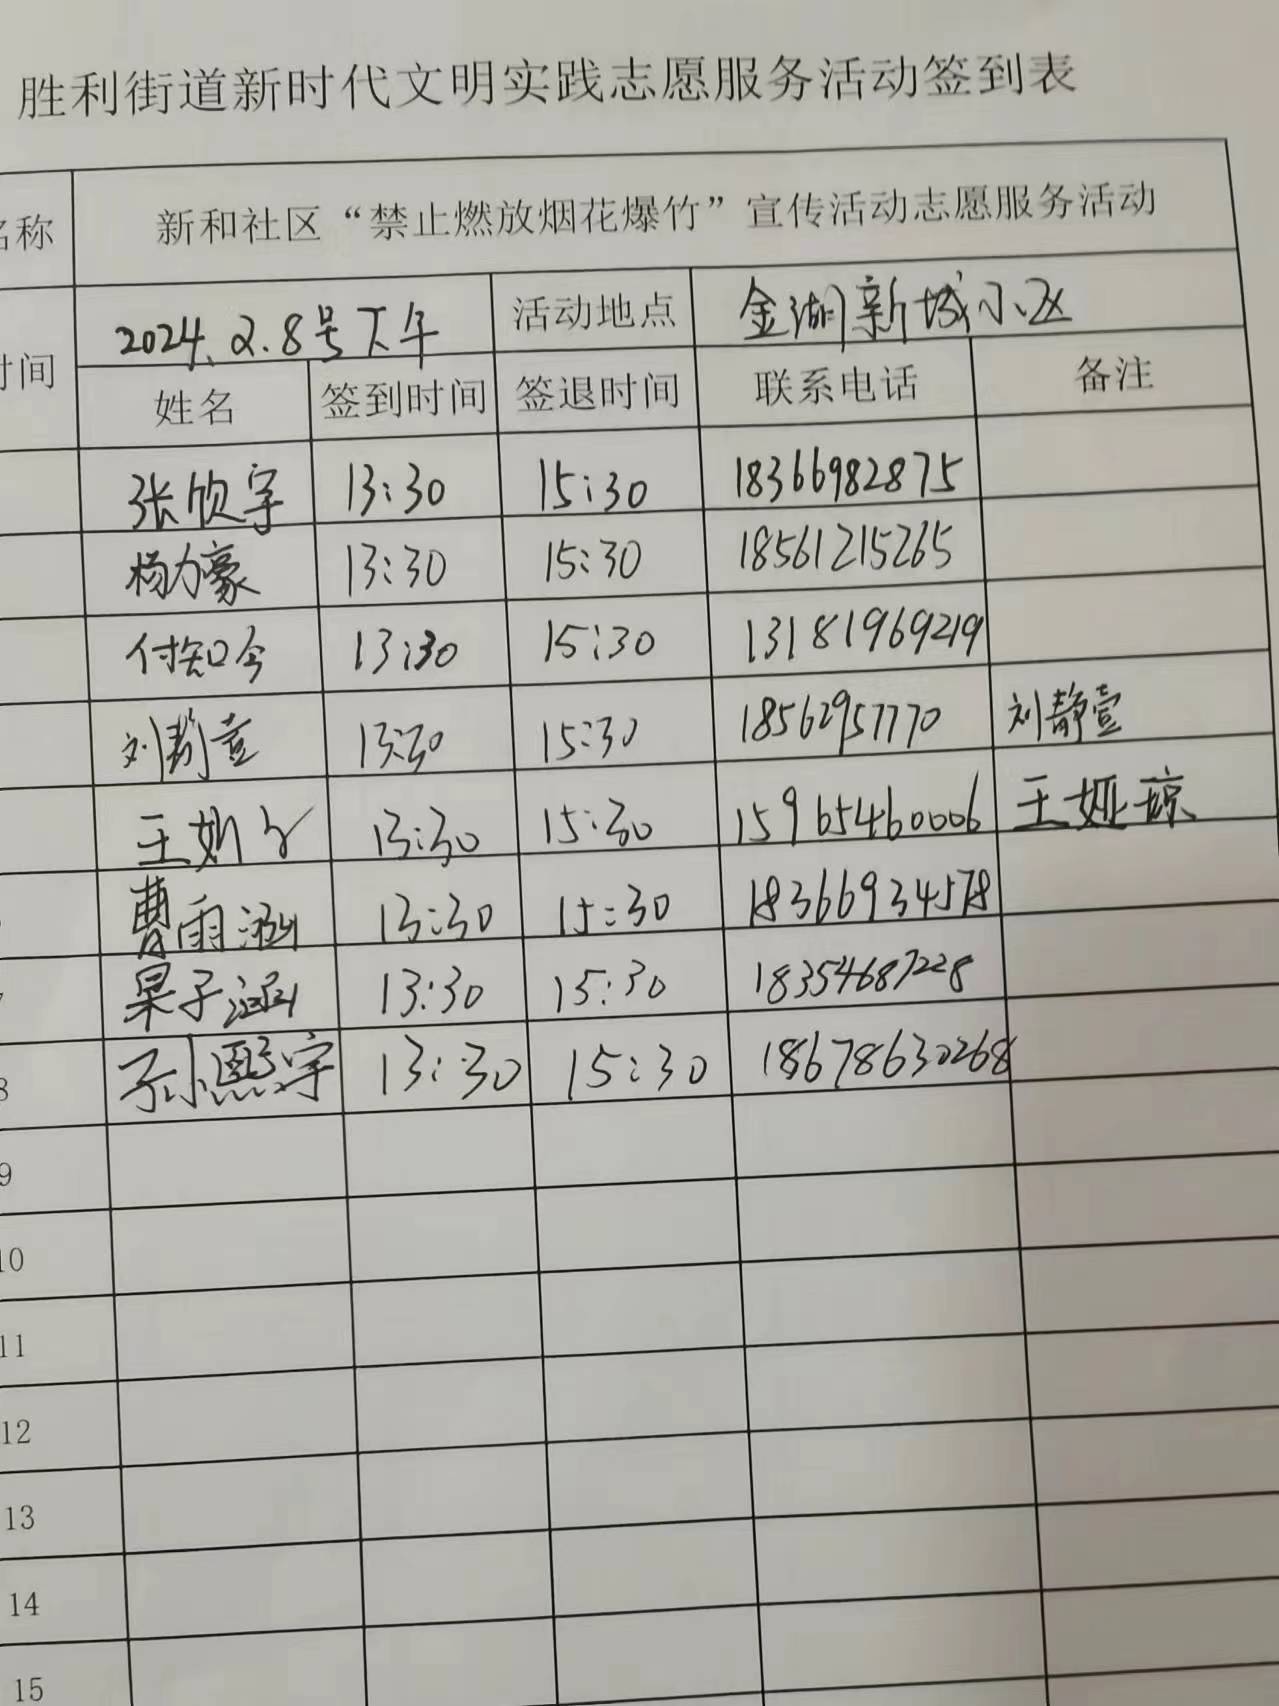 胜利街道新时代文明实践志愿服务活动签到表
名称 新和社区“禁止燃放烟花爆竹”宣传活动志愿服务活动
时间 2024.2.8号下午 活动地点 金湖新城小区
姓名 签到时间 签退时间 联系电话 备注
张欣宇 13:30 15:30 18366982875
杨力豪 13:30 15:30 18561215265
付知今 13:30 15:30 13181969219
刘静萱 13:30 15:30 18562957770 刘静萱
王娅 13:30 15:30 15965460006 王娅琼
曹雨涵 13:30 15:30 18366934578
杲子涵 13:30 15:30 18354687228
8 孙熙宇 13:30 15:30 18678630268
9
10
11
12
13
14
15